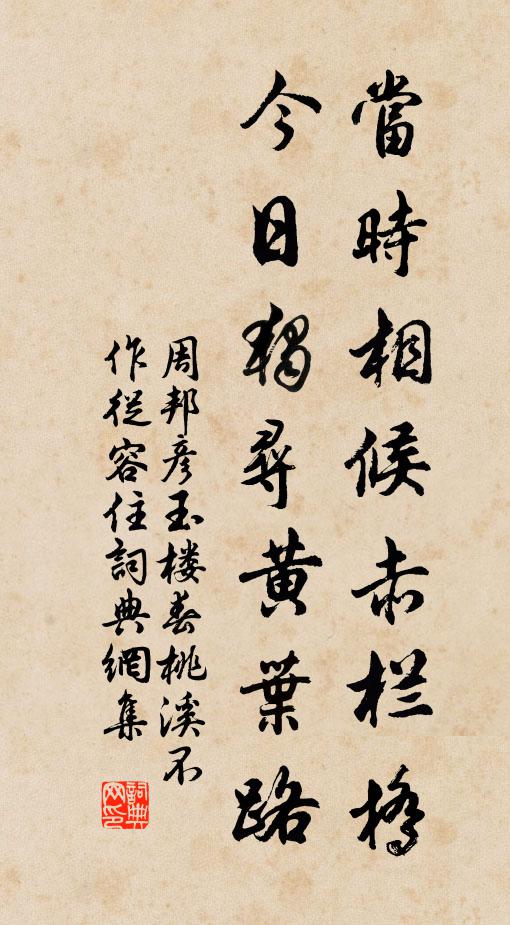 當時相候赤栏橋
今日獨尋黄葉路
周邦彦玉楼春桃溪不
作從容住詞典網集
詞典网印